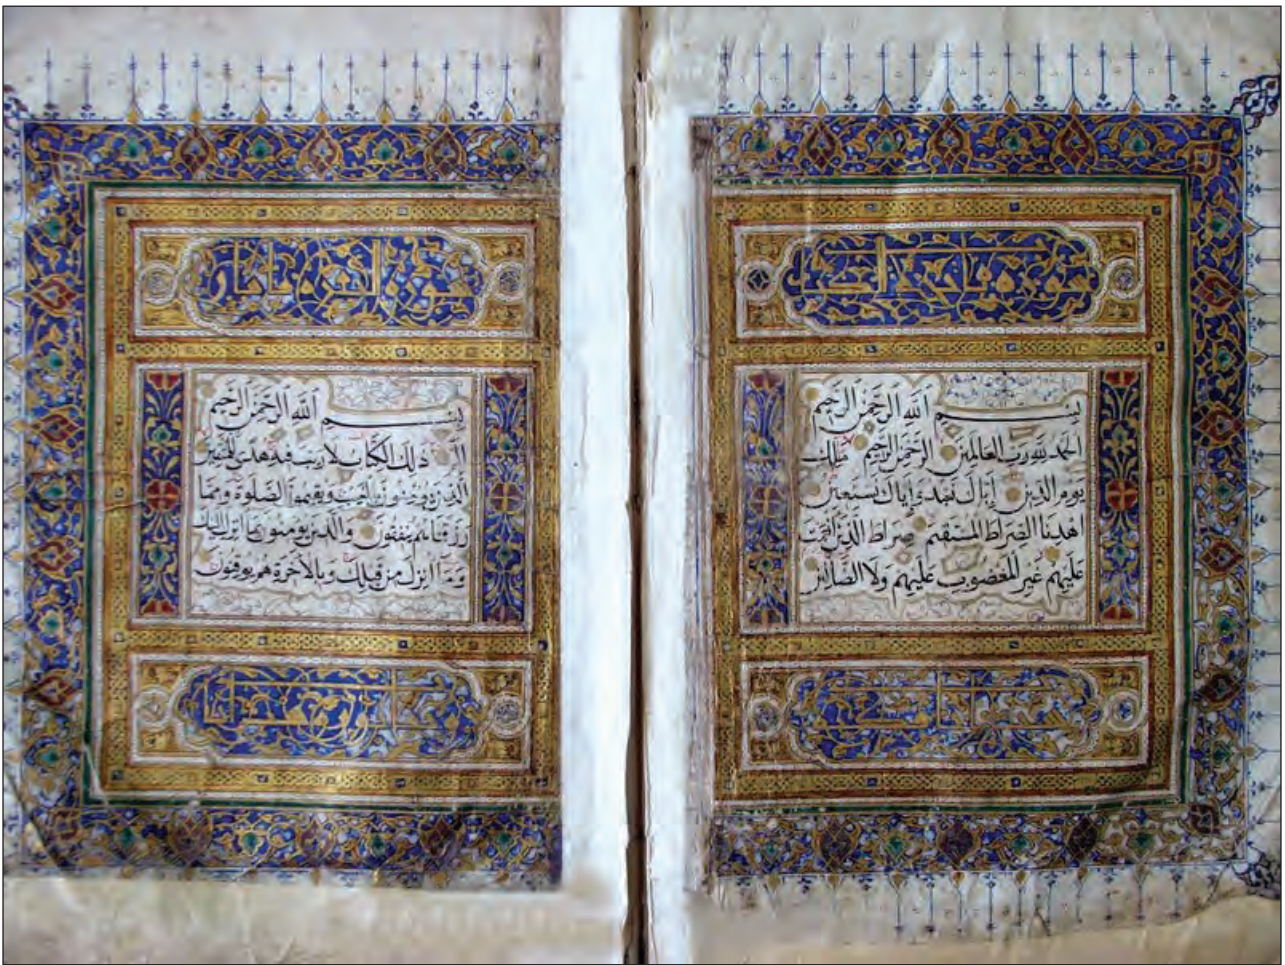 سورة فاتحة الكتاب
بسم الله الرحمن الرحيم
الحمد لله رب العالمين الرحمن الرحيم ملك
يوم الدين إياك نعبد وإياك نستعين
اهدنا الصراط المستقيم صراط الذين أنعمت
عليهم غير المغضوب عليهم ولا الضالين
سورة البقرة
بسم الله الرحمن الرحيم
الم ذلك الكتاب لا ريب فيه هدى للمتقين
الذين يؤمنون بالغيب ويقيمون الصلوة ومما
رزقناهم ينفقون والذين يؤمنون بما انزل اليك
وما انزل من قبلك وبالآخرة هم يوقنون